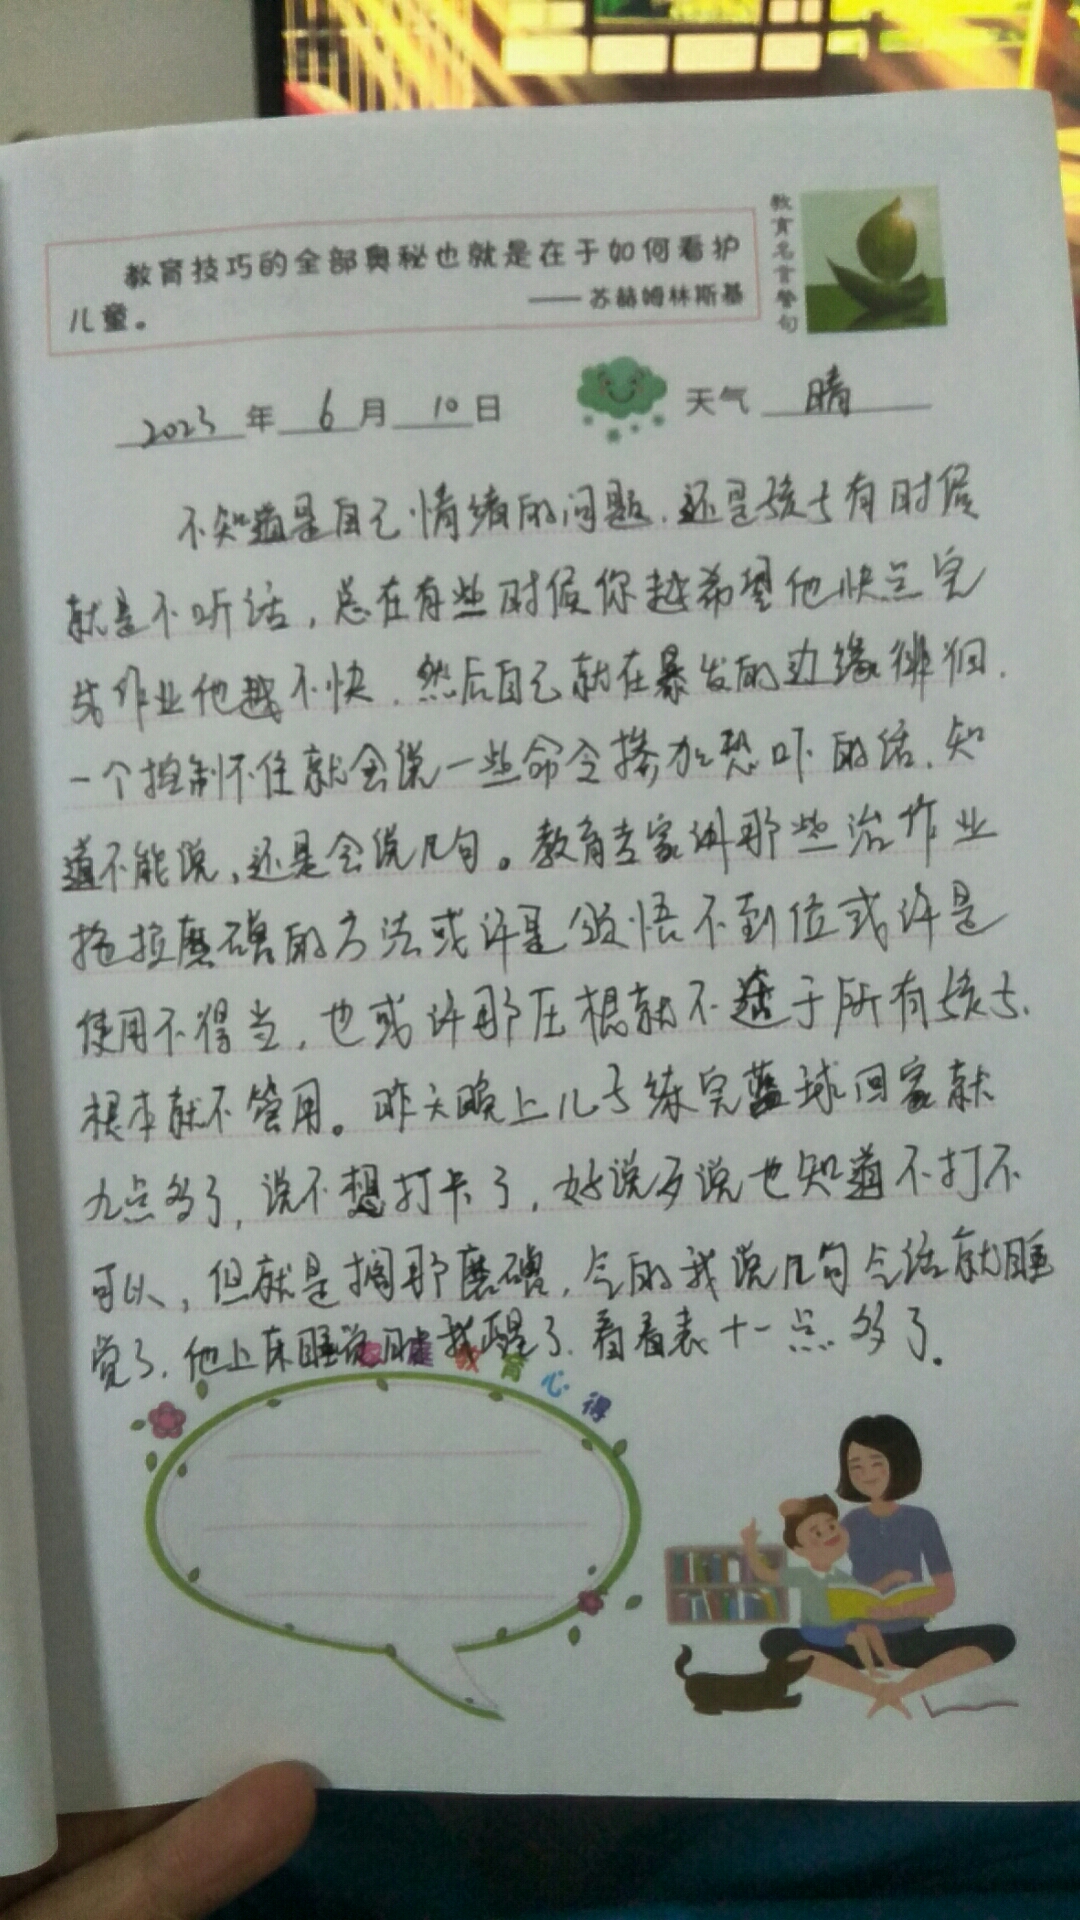 教育技巧的全部奥秘也就是在于如何看护
儿童。
——苏赫姆林斯基
教育名言警句
2023年6月10日
天气 晴
不知道是自己情绪的问题,还是孩子有时候
就是不听话,总在有些时候你越希望他快点完
成作业他越不快,然后自己就在暴发的边缘徘徊,
一个控制不住就会说一些命令掺加恐吓的话,知
道不能说,还是会说几句。教育专家讲那些治作业
拖拉磨磳的方法或许是领悟不到位或许是
使用不得当,也或许那压根就不适于所有孩子,
根本就不管用。昨天晚上儿子练完蓝球回家就
九点多了,说不想打卡了,好说歹说也知道不打不
可以,但就是搁那磨磳,气的我说几句气话就睡
觉了,他上床睡觉时我醒了,看看表十一点多了。
教育心得